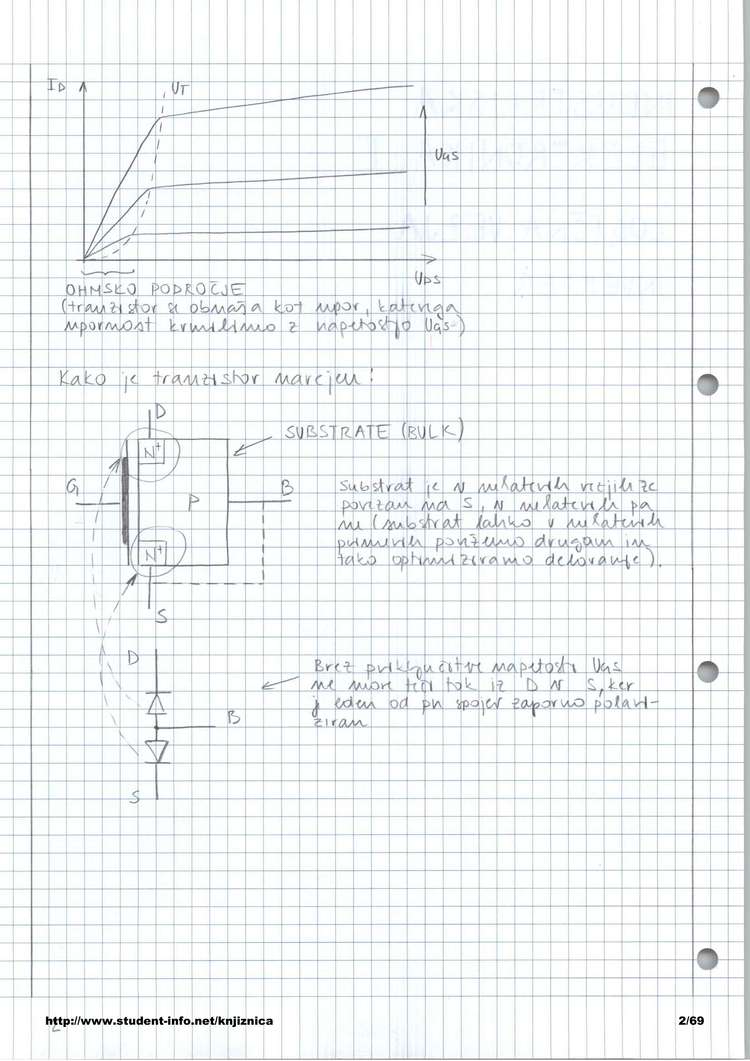 I_D
U_T
U_GS
U_DS
OHMSKO PODROČJE
(tranzistor se obnaša kot upor, katerega
upornost krmilimo z napetostjo U_GS)
Kako je tranzistor narejen:
D
N+
SUBSTRATE (BULK)
G
P
B
N+
S
Substrat je v nekaterih vezjih že
povezan na S, v nekaterih pa
ne (substrat lahko v nekaterih
primerih povežemo drugam in
tako optimiziramo delovanje).
D
B
S
Brez priključitve napetosti U_GS
ne more teči tok iz D v S, ker
je eden od pn spojev zaporno polari-
ziran
http://www.student-info.net/knjiznica
2/69